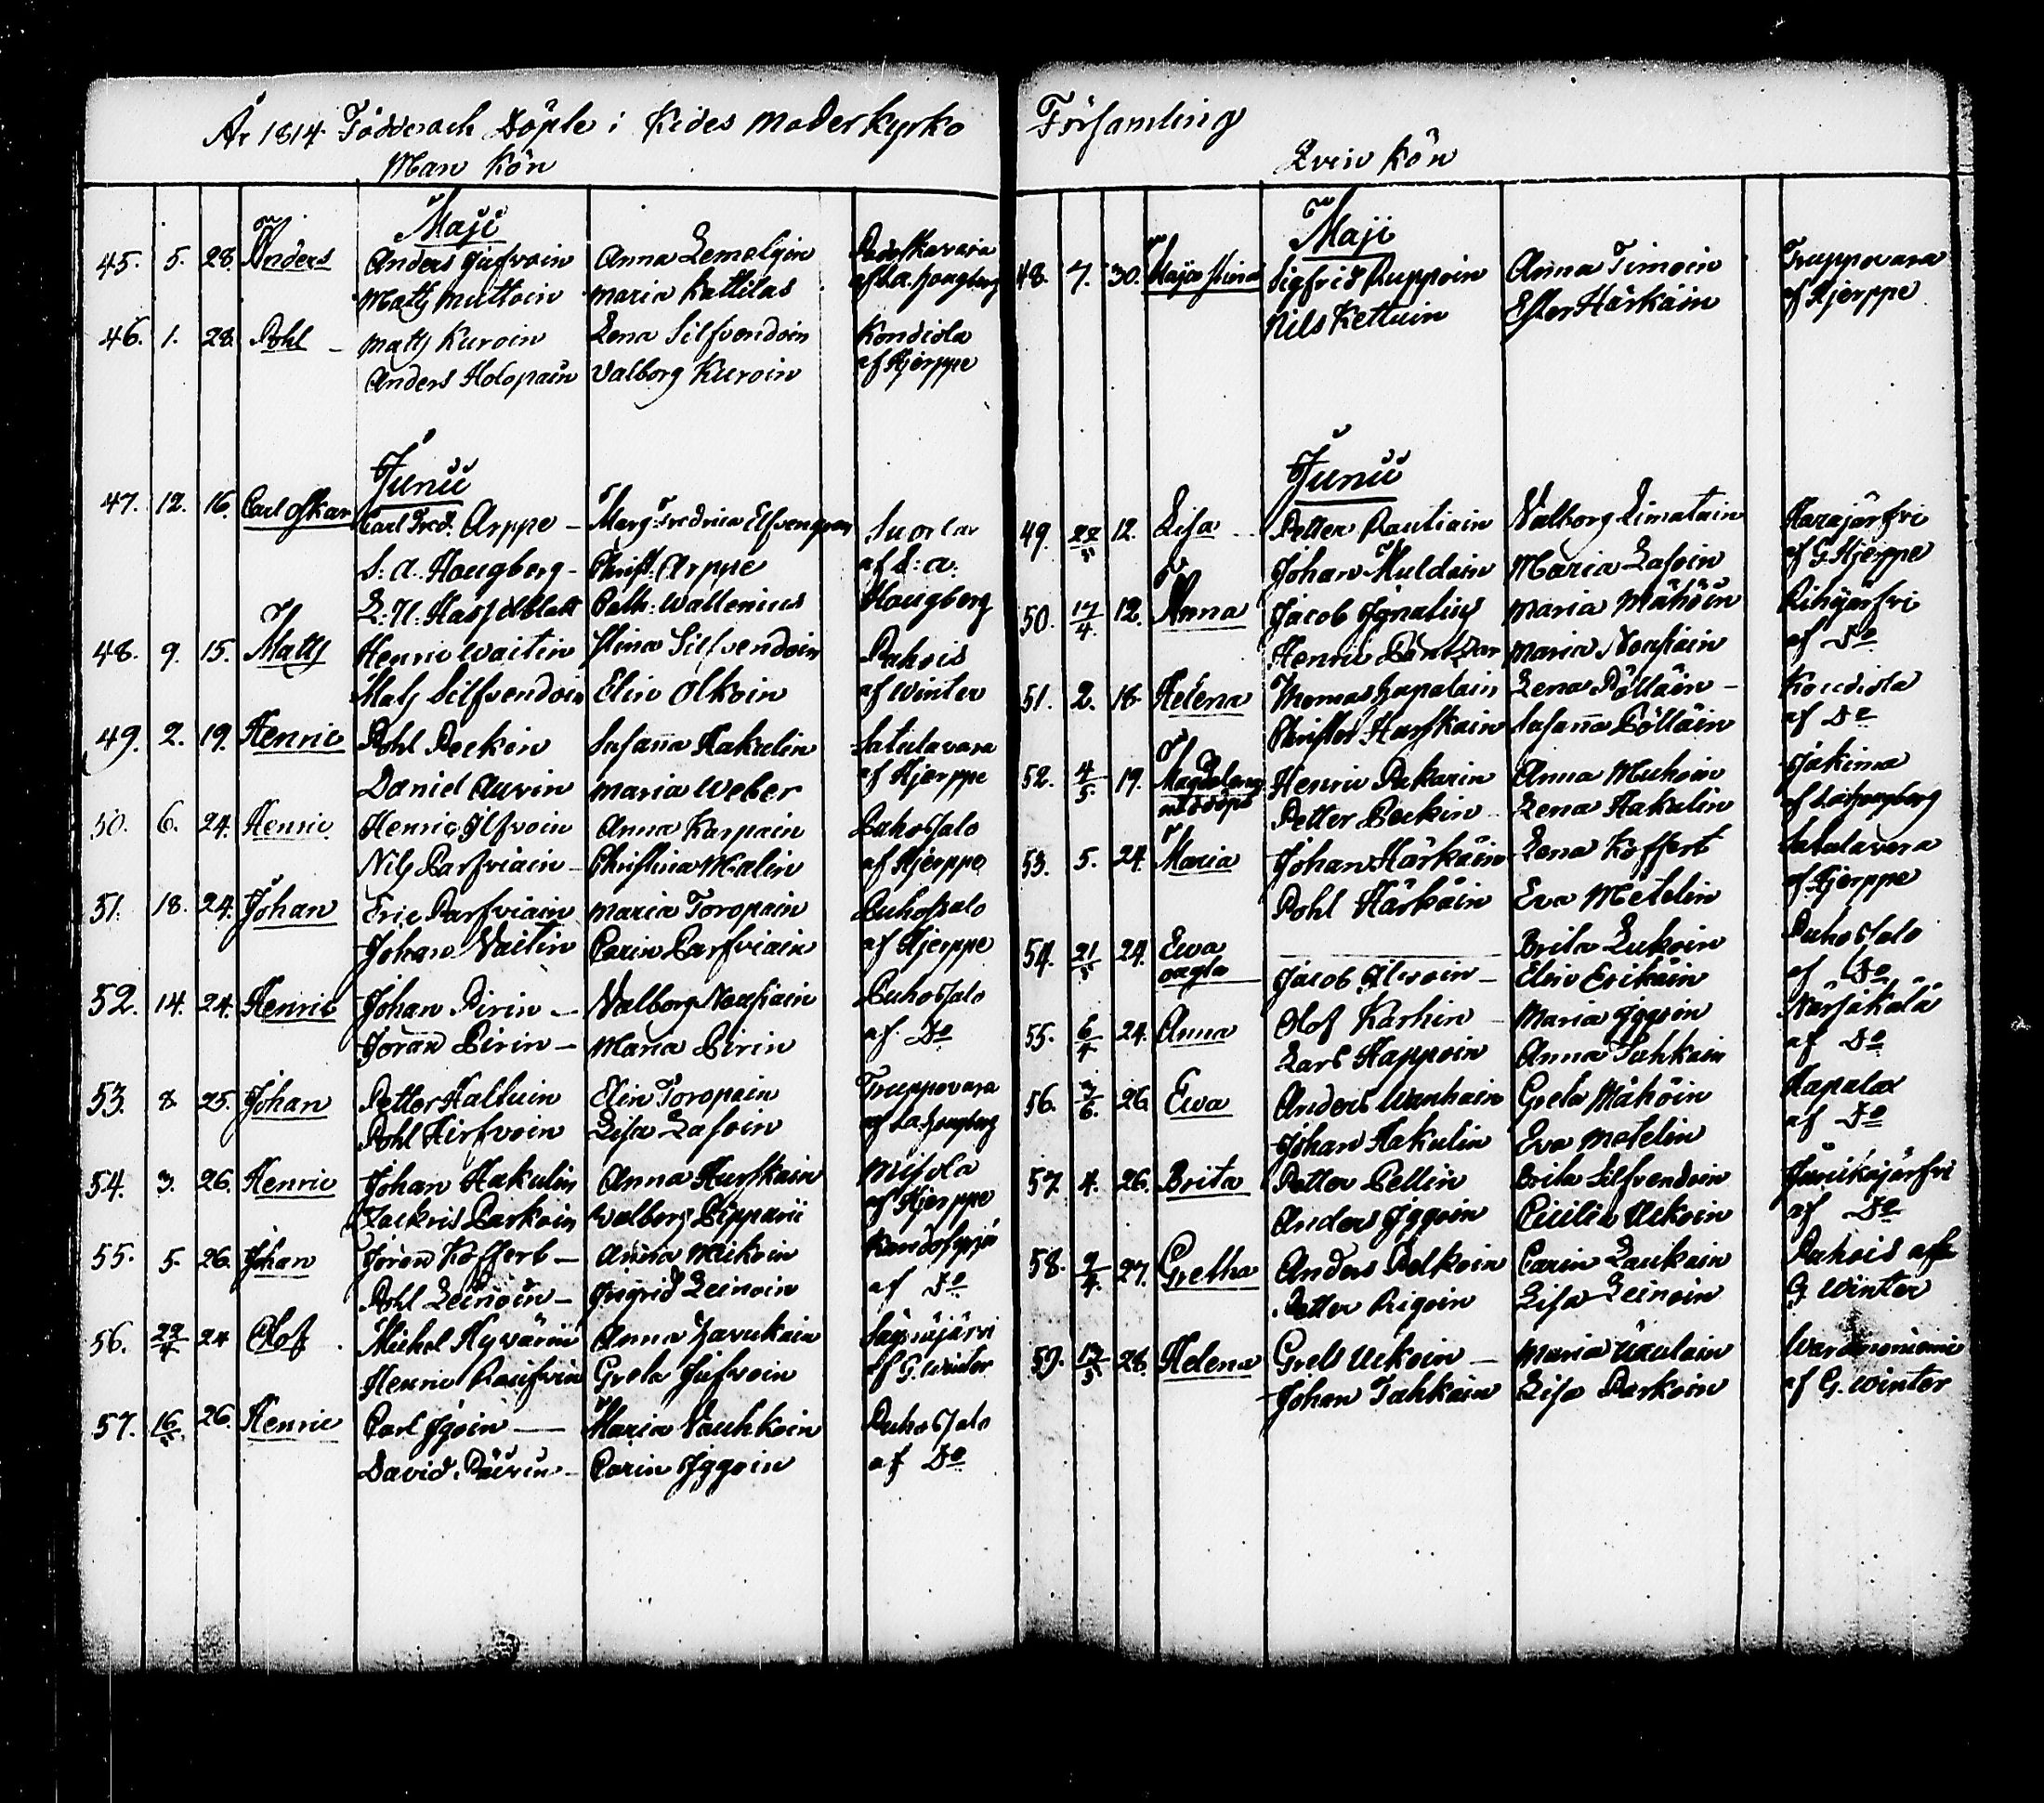 År 1814 Födde och Döpte i Kides Moderkyrko
Man Kön
Maji
45. 5. 28. Anders Anders Jufvoin Anna Lemelgin
Matts Muttoin Maria Kattilas af L.A. Hougberg
46. 1. 28. Pohl – Matts Kuroin Lena Silfvendoin Kondiola
Anders Holopain Valborg Kuroin af Hjerppe
Junii
47. 12. 16. Carl Oskar Carl Fred. Arppe – Marg. Fredrica Elfvengren Suorlax
S: A. Hougberg – Christ. Arppe af S: A.
L: U: Hassjelblatt Cath: Wallenius Hougberg
48. 9. 15. Matts Henric Waitin Stina Silfvendoin Puhois
Mats Silfvendoin Elin Olkoin af Winter
49. 2. 19. Henric Pohl Peckin Susanna Hakulin Satulavara
Daniel Auvin Maria Weber af Hjerppe
50. 6. 24. Henric Henric Ilfvoin Anna Karpain Puhossalo
Nils Parfviain – Christina Malin af Hjerppe
51. 18. 24. Johan Eric Parfviain Maria Toropain Puhossalo
Johan Vaitin Carin Parfviain af Hjerppe
52. 14. 24. Henric Johan Pirin – Valborg Nousiain Puhossalo
Jöran Pirin – Maria Pirin af Do
53. 8. 25. Johan Petter Haltuin Elin Toropain Truppovara
Pohl Hirfvoin Lisa Lasoin af L.A. Hougberg
54. 3. 26. Henric Johan Hakulin Anna Hurskain Misola
Zackris Parkoin Walborg Pipparii af Hjerppe
55. 5. 26. Johan Jöran Kofferb – Anna Mukoin
Pohl Leinoin – Ingrid Leinoin af Do
56. 22/4 24 Olof Michel Hyvärin Anna Zavukain
Henric Raufvin Greta Jufvoin af G. Winter
57. 16/5. 26. Henric Carl Igoin – Maria Vauhkoin Puhossalo
David Päivin – Carin Iggoin af Do
Församling
Qvin Kön
Maji
48. 7. 30. Maja Stina Sigfrid Ruppoin Anna Timoin Truppovara
Nils Kettuin Ester Härkäin af Hjerppe
Junii
49. 22/5 12. Lisa – Petter Rautiain Valborg Limatain Harajärfvi
Johan Muldoin Maria Lasoin af G. Hjerppe
50. 17/4. 12. Anna Jacob Ignatius Maria Mähöin
Henric Pontzar Maria Nousiain af Do
51. 2. 18 Helena Thomas Zapatain Lena Pöllöin – Kondiola
Christer Hurskain Susanna Pöllöin af Do
52. 4/5. 19. Magdalena Henric Pakarin Anna Muhoin Jakima
nöddöpt Petter Peckin Lena Hakulin af L.A. Hougberg
53. 5. 24. Maria Johan Härkäin Lena Koffert Satulavara
Pohl Härkäin Eva Metelin af Hjerppe
54. 21/5 24. Ewa Brita Lukoin Puhossalo
oägta Jacob Ilwoin – Elin Erikäin af Do
55. 6/4 24. Anna Olof Karhin – Maria Iggoin Närsäkälä
Lars Happoin Anna Tuhkain af Do
56. 3/6. 26 Ewa Anders Wanhain Greta Mähöin Hapalax
Johan Hakulin Eva Metelin af Do
57. 4. 26. Brita Petter Pellin Brita Silfvendoin Juurikajärfvi
Anders Iggoin Cicilia Uckoin af Do
58. 9/4. 27. Gretha Anders Polkoin Carin Laukain Puhois af
Petter Rigoin Lisa Leinoin G. Winter
59. 17/5 28. Helena Grels Uckoin – Maria Väulain Wardnoniemi
Johan Tuhkain Lisa Parkoin af G. Winter